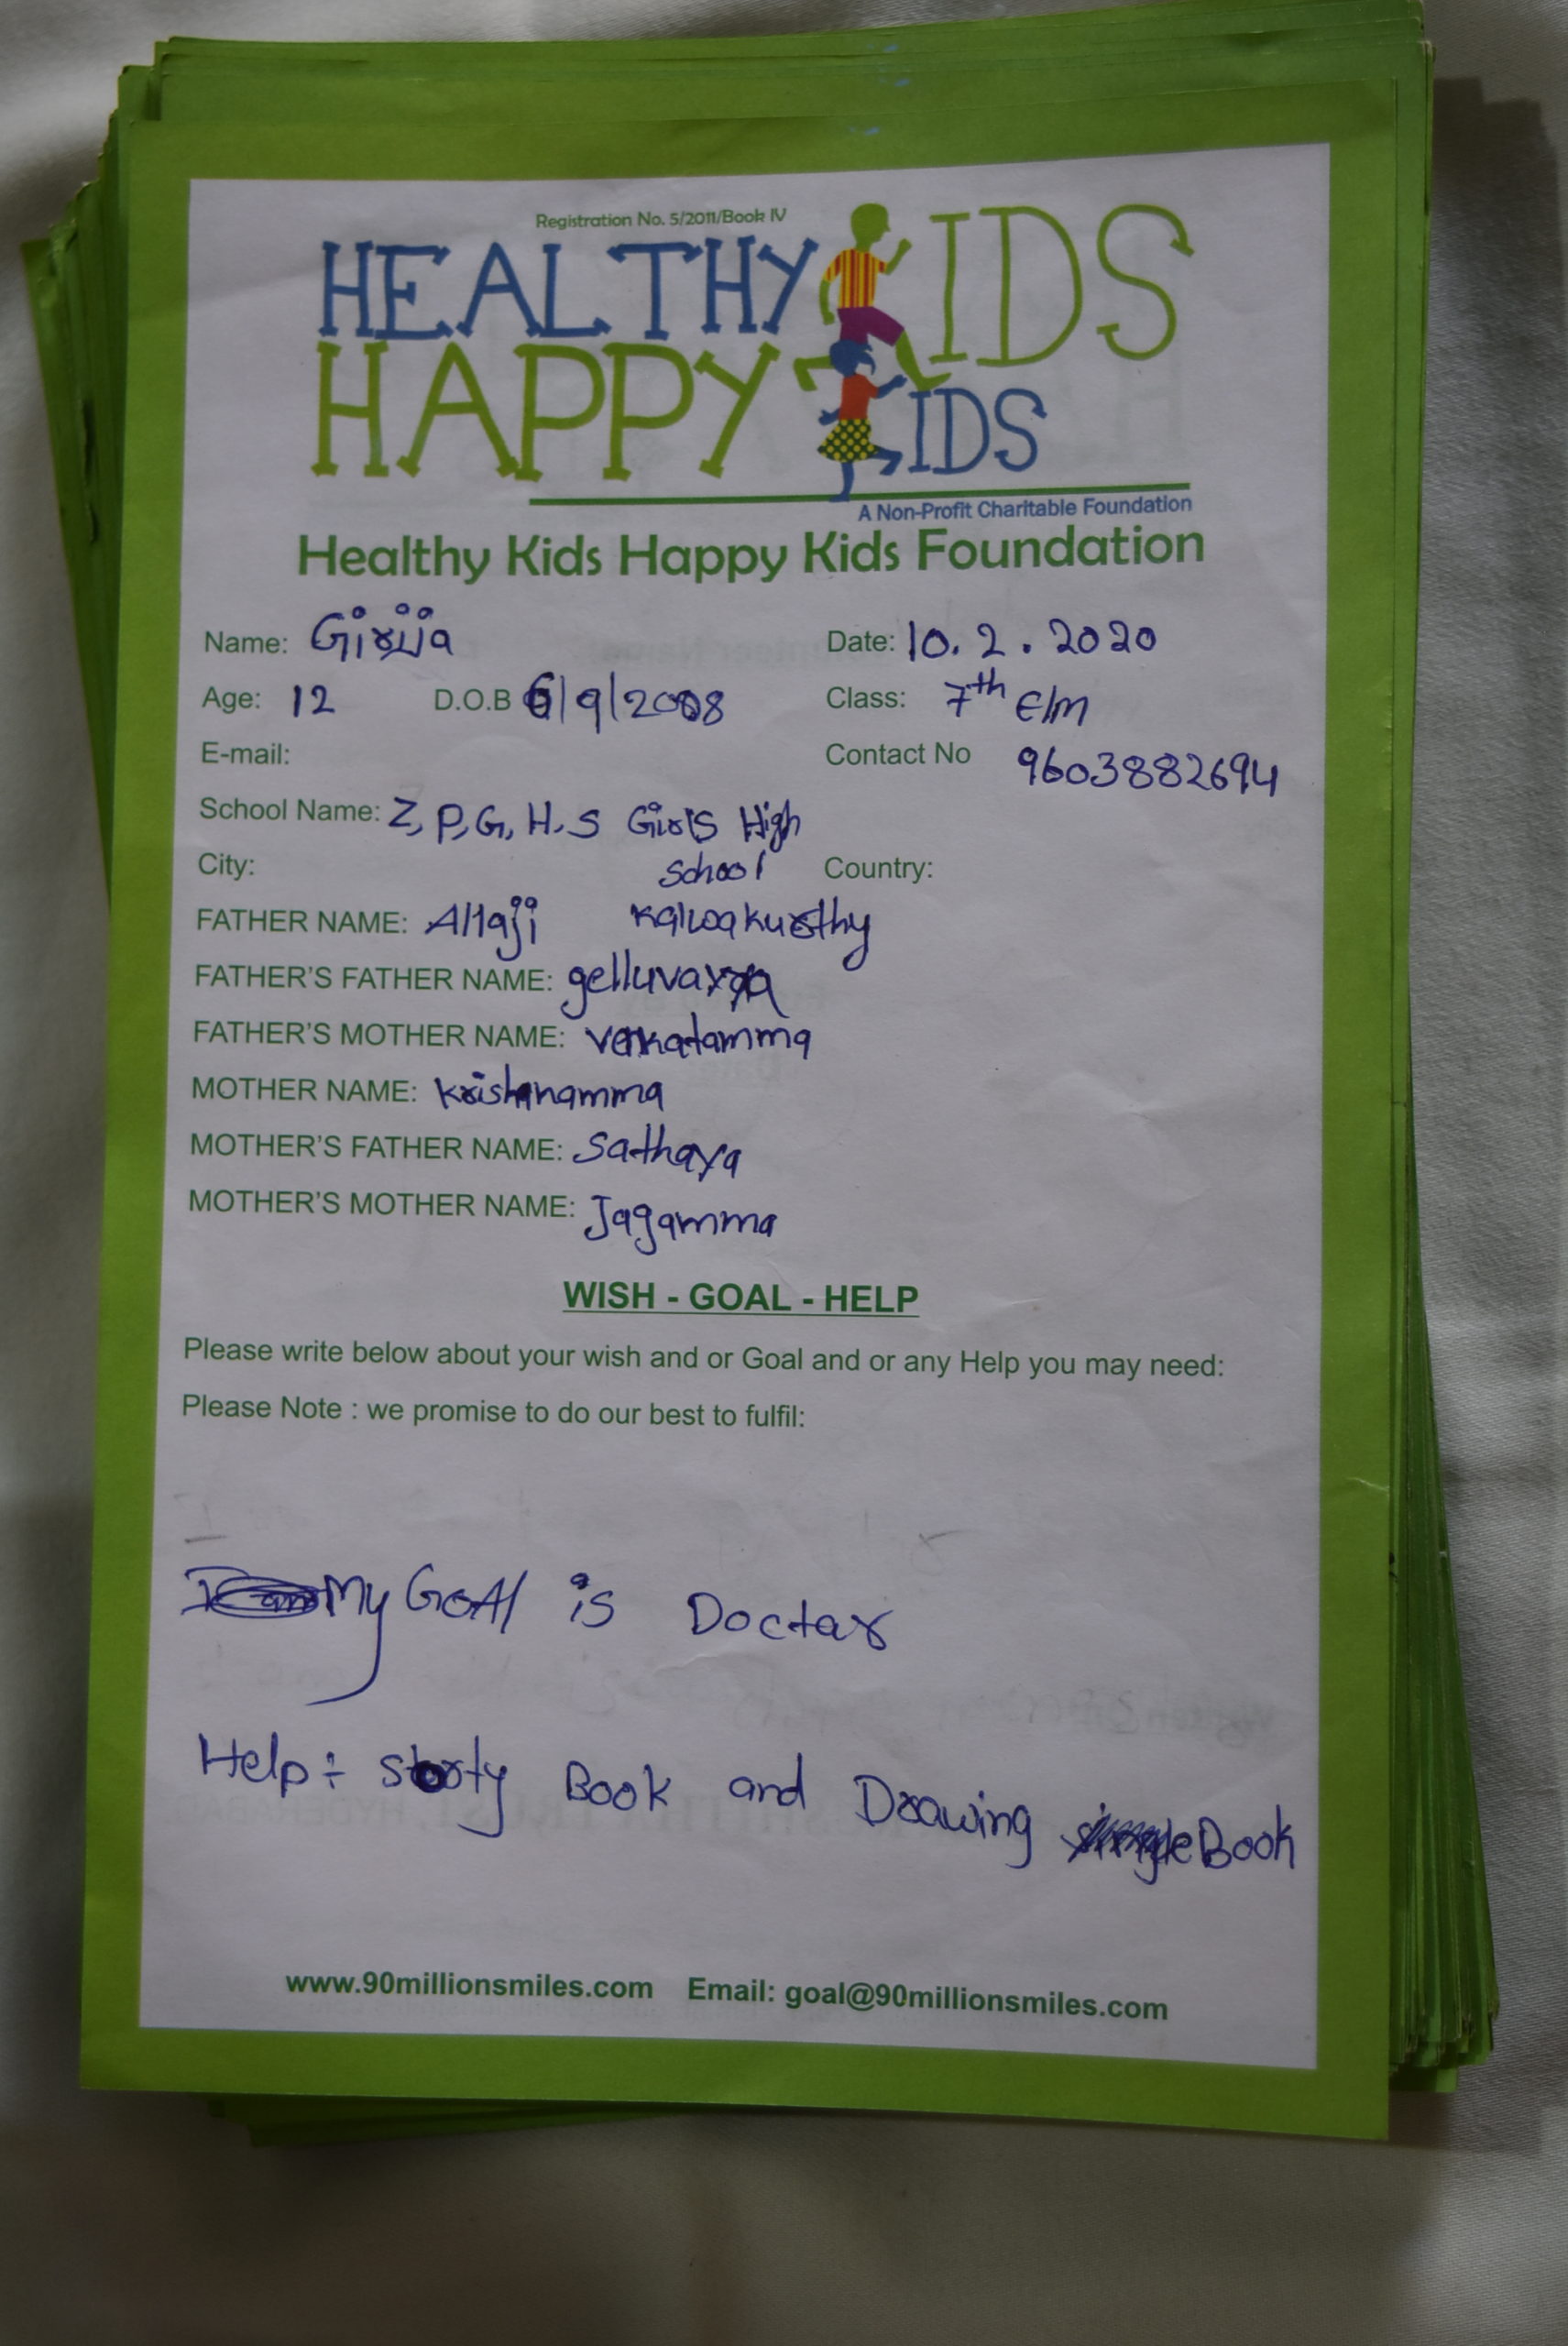 Registration No. 5/2011/Book IV
HEALTHY KIDS
HAPPY KIDS
A Non-Profit Charitable Foundation
Healthy Kids Happy Kids Foundation
Name: Girija Date: 10.2.2020
Age: 12 D.O.B 6/9/2008 Class: 7th E/m
E-mail: Contact No 9603882694
School Name: Z, P, G, H.S Girls High
City: School Country:
FATHER NAME: Allaji kalwakurthy
FATHER'S FATHER NAME:
FATHER'S MOTHER NAME: venkatamma
MOTHER NAME: krishnamma
MOTHER'S FATHER NAME: Sathaya
MOTHER'S MOTHER NAME: Jagamma
WISH - GOAL - HELP
Please write below about your wish and or Goal and or any Help you may need:
Please Note : we promise to do our best to fulfil:
My GOAl is Doctar
Help:- story Book and Drawing Book
www.90millionsmiles.com Email: goal@90millionsmiles.com